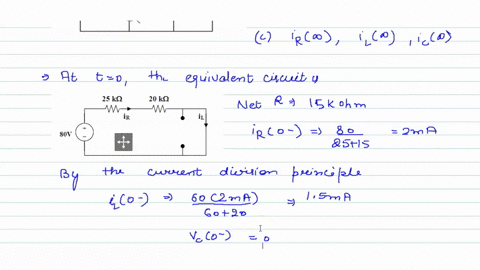 (c) iR(∞), iL(∞), ic(∞)
⇒ At t=0, the equivalent circuit is
25 kΩ 20 kΩ
iR iL
80V
Net R ⇒ 15 k ohm
iR(0-) ⇒ 80/(25+15) = 2mA
By the current division principle
iL(0-) ⇒ 60(2mA)/(60+20) ⇒ 1.5mA
Vc(0-) = 0